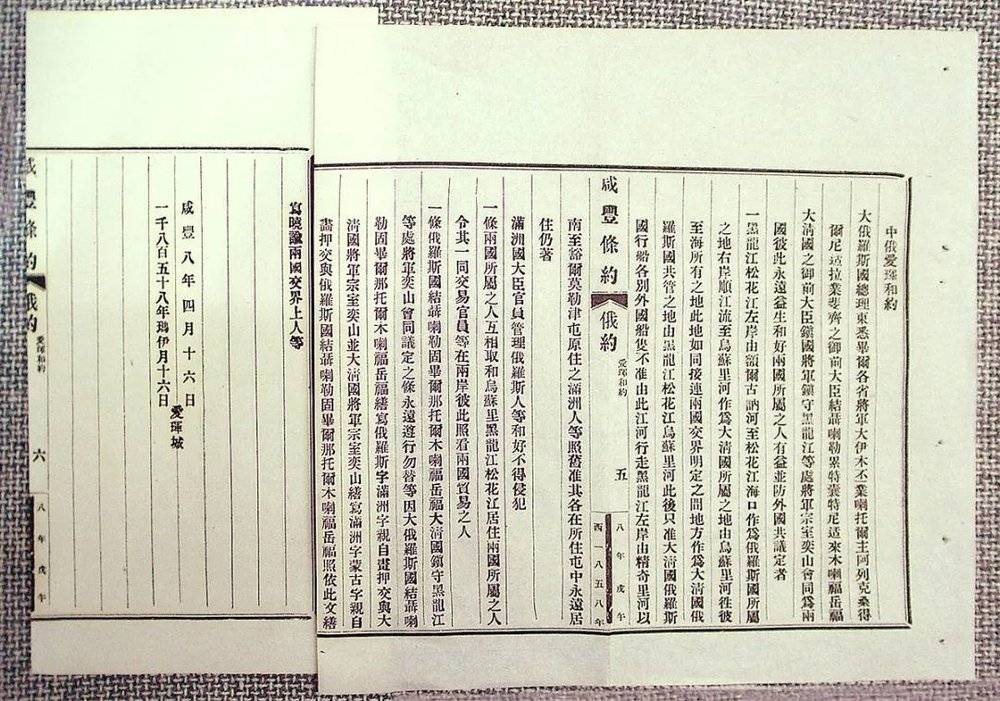 中俄愛琿和約
大俄羅斯國總理東悉畢爾各省將軍大伊木丕業喇托爾主阿列克桑得
爾尼适拉業斐齊之御前大臣結聶喇勒累特囊特尼适來木喇福岳福
大清國之御前大臣鎭國將軍鎭守黑龍江等處將軍宗室奕山會同爲兩
國彼此永遠益生和好兩國所屬之人有益並防外國共議定者
一黑龍江松花江左岸由額爾古訥河至松花江海口作爲俄羅斯國所屬
之地右岸順江流至烏蘇里河作爲大清國所屬之地由烏蘇里河往彼
至海所有之地此地如同接連兩國交界明定之間地方作爲大清國俄
羅斯國共管之地由黑龍江松花江烏蘇里河此後只准大清國俄羅斯
國行船各別外國船隻不准由此江河行走黑龍江左岸由精奇里河以
咸豐條約 俄約 愛琿和約 五 八年戊午 西一八五八年
南至豁爾莫勒津屯原住之滿洲人等照舊准其各在所住屯中永遠居
住仍著
滿洲國大臣官員管理俄羅斯人等和好不得侵犯
一條兩國所屬之人互相取和烏蘇里黑龍江松花江居住兩國所屬之人
令其一同交易官員等在兩岸彼此照看兩國貿易之人
一條俄羅斯國結聶喇勒固畢爾那托爾木喇福岳福大清國鎭守黑龍江
等處將軍奕山會同議定之條永遠遵行勿替等因大俄羅斯國結聶喇
勒固畢爾那托爾木喇福岳福繕寫俄羅斯字滿洲字親自畫押交與大
清國將軍宗室奕山並大清國將軍宗室奕山繕寫滿洲字蒙古字親自
畫押交與俄羅斯國結聶喇勒固畢爾那托爾木喇福岳福照依此文繕
寫曉諭兩國交界上人等
咸豐八年四月十六日
愛琿城
一千八百五十八年瑪伊月十六日
咸豐條約 俄約 愛琿和約 六 八年戊午